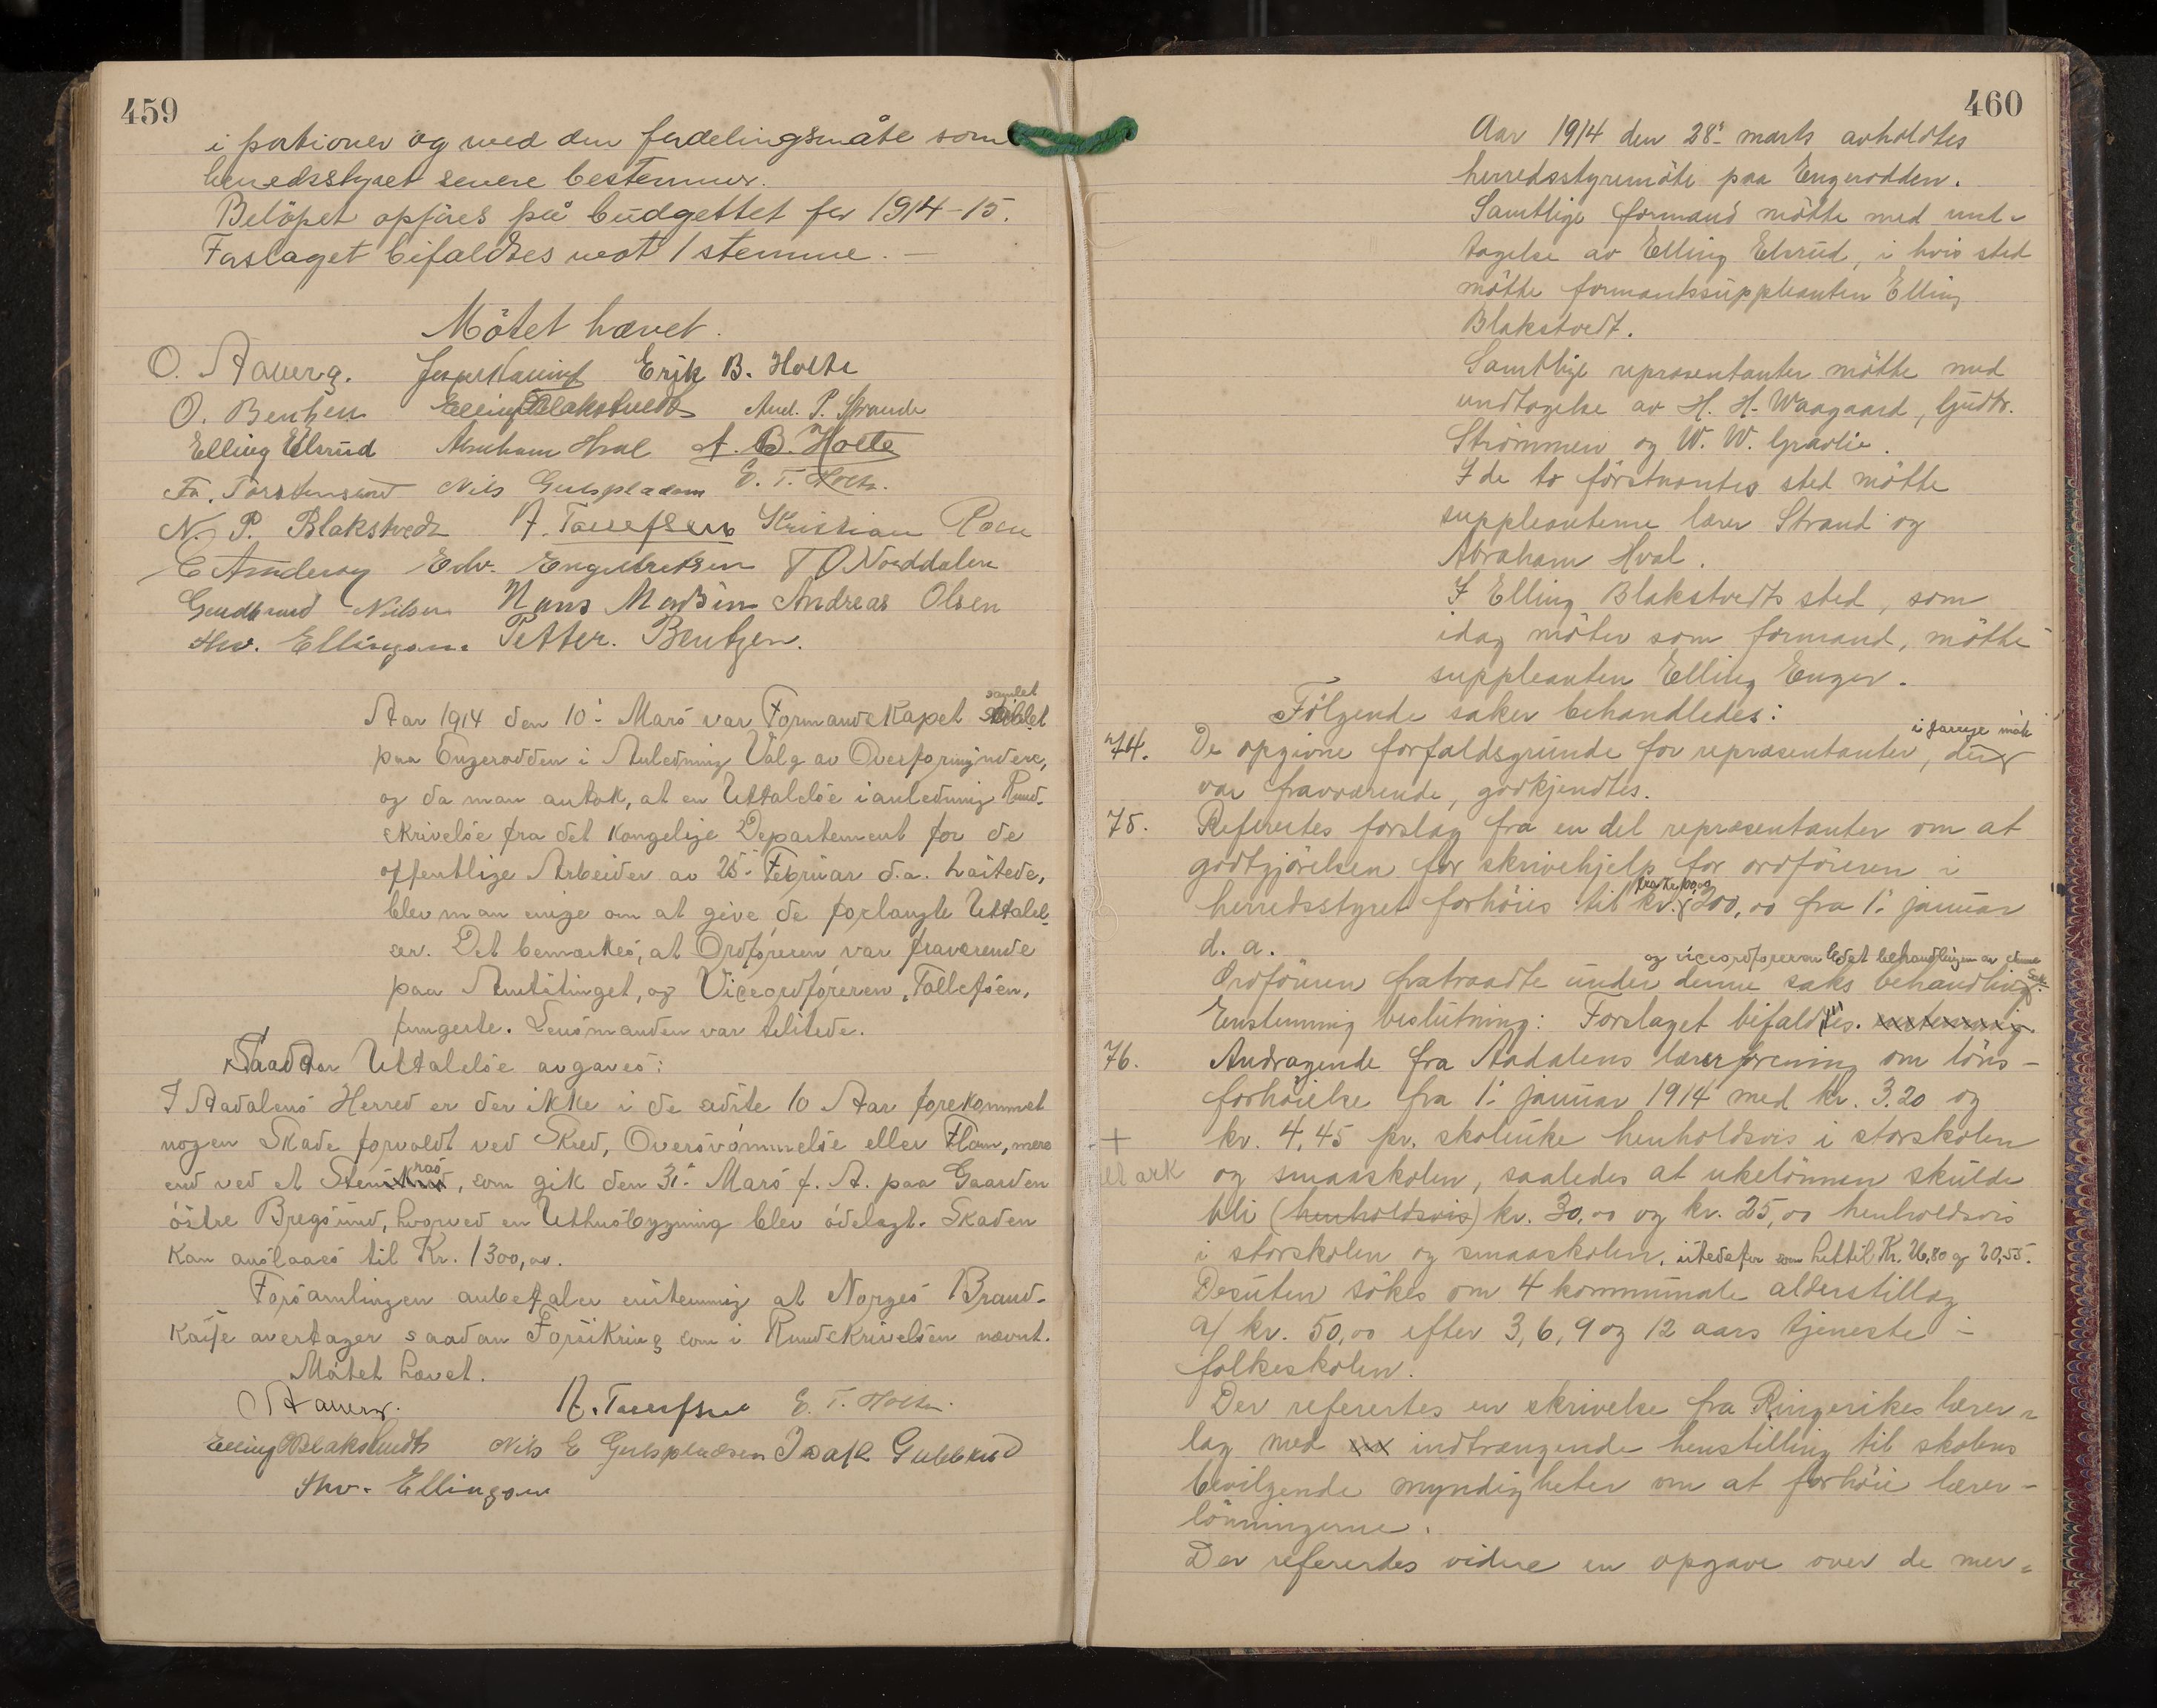 459
i portioner og med den fordelingsmåte som
herredsstyret senere bestemmer.
Beløpet opføres på budgettet for 1914-15.
Forslaget bifaldtes mot 1 stemme. –
Møtet hævet.
O. Aaverg. Erik B. Holte
O. Bentzen Elling Blakstvedt And. P. Strande
Elling Elsrud Abraham Hval A. B. Holte
Fr. Torstensrud Nils Gulspladsen E. T. Holte.
N. P. Blakstvedt A. Tollefsen Kristian Roen
C Amundsen Edv. Engebretsen T O Norddalen
Gudbrand Nilsen Hans Madsen Andreas Olsen
Thv. Ellingsen. Petter. Bentzen.
Aar 1914 den 10' Mars var Formandskapet samlet
paa Engerodden i Anledning Valg av Overformyndere,
og da man antok, at en Uttalelse i anledning Rund-
skrivelse fra det kongelige Departement for de
offentlige Arbeider av 25' Februar d.a. hastede,
blev man enige om at give de forlangte Uttalel-
ser. Det bemærkes, at Ordføreren var fraværende
paa Amtstinget, og Viceordføreren, Tollefsen,
fungerte. Lensmanden var tilstede.
Saadan Uttalelse avgaves:
I Aadalens Herred er der ikke i de sidste 10 Aar forekommet
nogen Skade forvoldt ved Skred, Oversvømmelse eller Flom, mere
end ved et Stenras, som gik den 31' Mars f. A. paa Gaarden
østre Bregsund, hvorved en Uthusbygning blev ødelagt. Skaden
kan anslaaes til Kr. 1300,00.
Forsamlingen anbefaler enstemmig at Norges Brand-
kasse overtager saadan Forsikring som i Rundskrivelsen nævnt.
Møtet hævet.
O Aaverg. A. Tollefsen E. T. Holte.
Elling Blakstvedt Nils E Gulspladsen Isak Gulbrud
Thv. Ellingsen
460
Aar 1914 den 28' marts avholdtes
herredsstyremøte paa Engerodden.
Samtlige formænd møtte med und-
tagelse av Elling Elsrud, i hvis sted
møtte formandssuppleanten Elling
Blakstvedt.
Samtlige repræsentanter møtte med
undtagelse av H. H. Waagaard, Gudbr.
Strømmen og W. W. Gravlie.
I de to førstnævntes sted møtte
suppleanterne lærer Strand og
Abraham Hval.
I Elling Blakstvedts sted, som
idag møter som formand, møtte
suppleanten Elling Enger.
Følgende saker behandledes:
i forrige møte
74. De opgivne forfaldsgrunde for repræsentanter, der
var fraværende, godkjendtes.
75. Referertes forslag fra en del repræsentanter om at
godtgjørelsen for skrivehjelp for ordføreren i
herredsstyret forhøies til kr. 200,00 fra 1' januar
d. a.
og viceordføreren ledet behandlingen av denne
Ordføreren fratraadte under denne saks behandling. Sak.
Enstemmig beslutning: Forslaget bifaldtes. enstemmig
76. Andragende fra Aadalens lærerforening om løns-
forhøielse fra 1' januar 1914 med kr. 3.20 og
+ kr. 4,45 pr. skoleuke henholdsvis i storskolen
og smaaskolen, saaledes at ukelønnen skulde
bli (henholdsvis) kr. 30,00 og kr. 25,00 henholdsvis
i storskolen og smaaskolen. istedefor som hittil Kr. 26,80 og 20,55.
Desuten søkes om 4 kommunale alderstillæg
a/ kr. 50,00 efter 3, 6, 9 og 12 aars tjeneste i
folkeskolen.
Der referertes en skrivelse fra Ringerikes lærer-
lag med indtrængende henstilling til skolens
bevilgende myndigheter om at forhøie lærer-
lønningerne.
Der referertes videre en opgave over de mer-